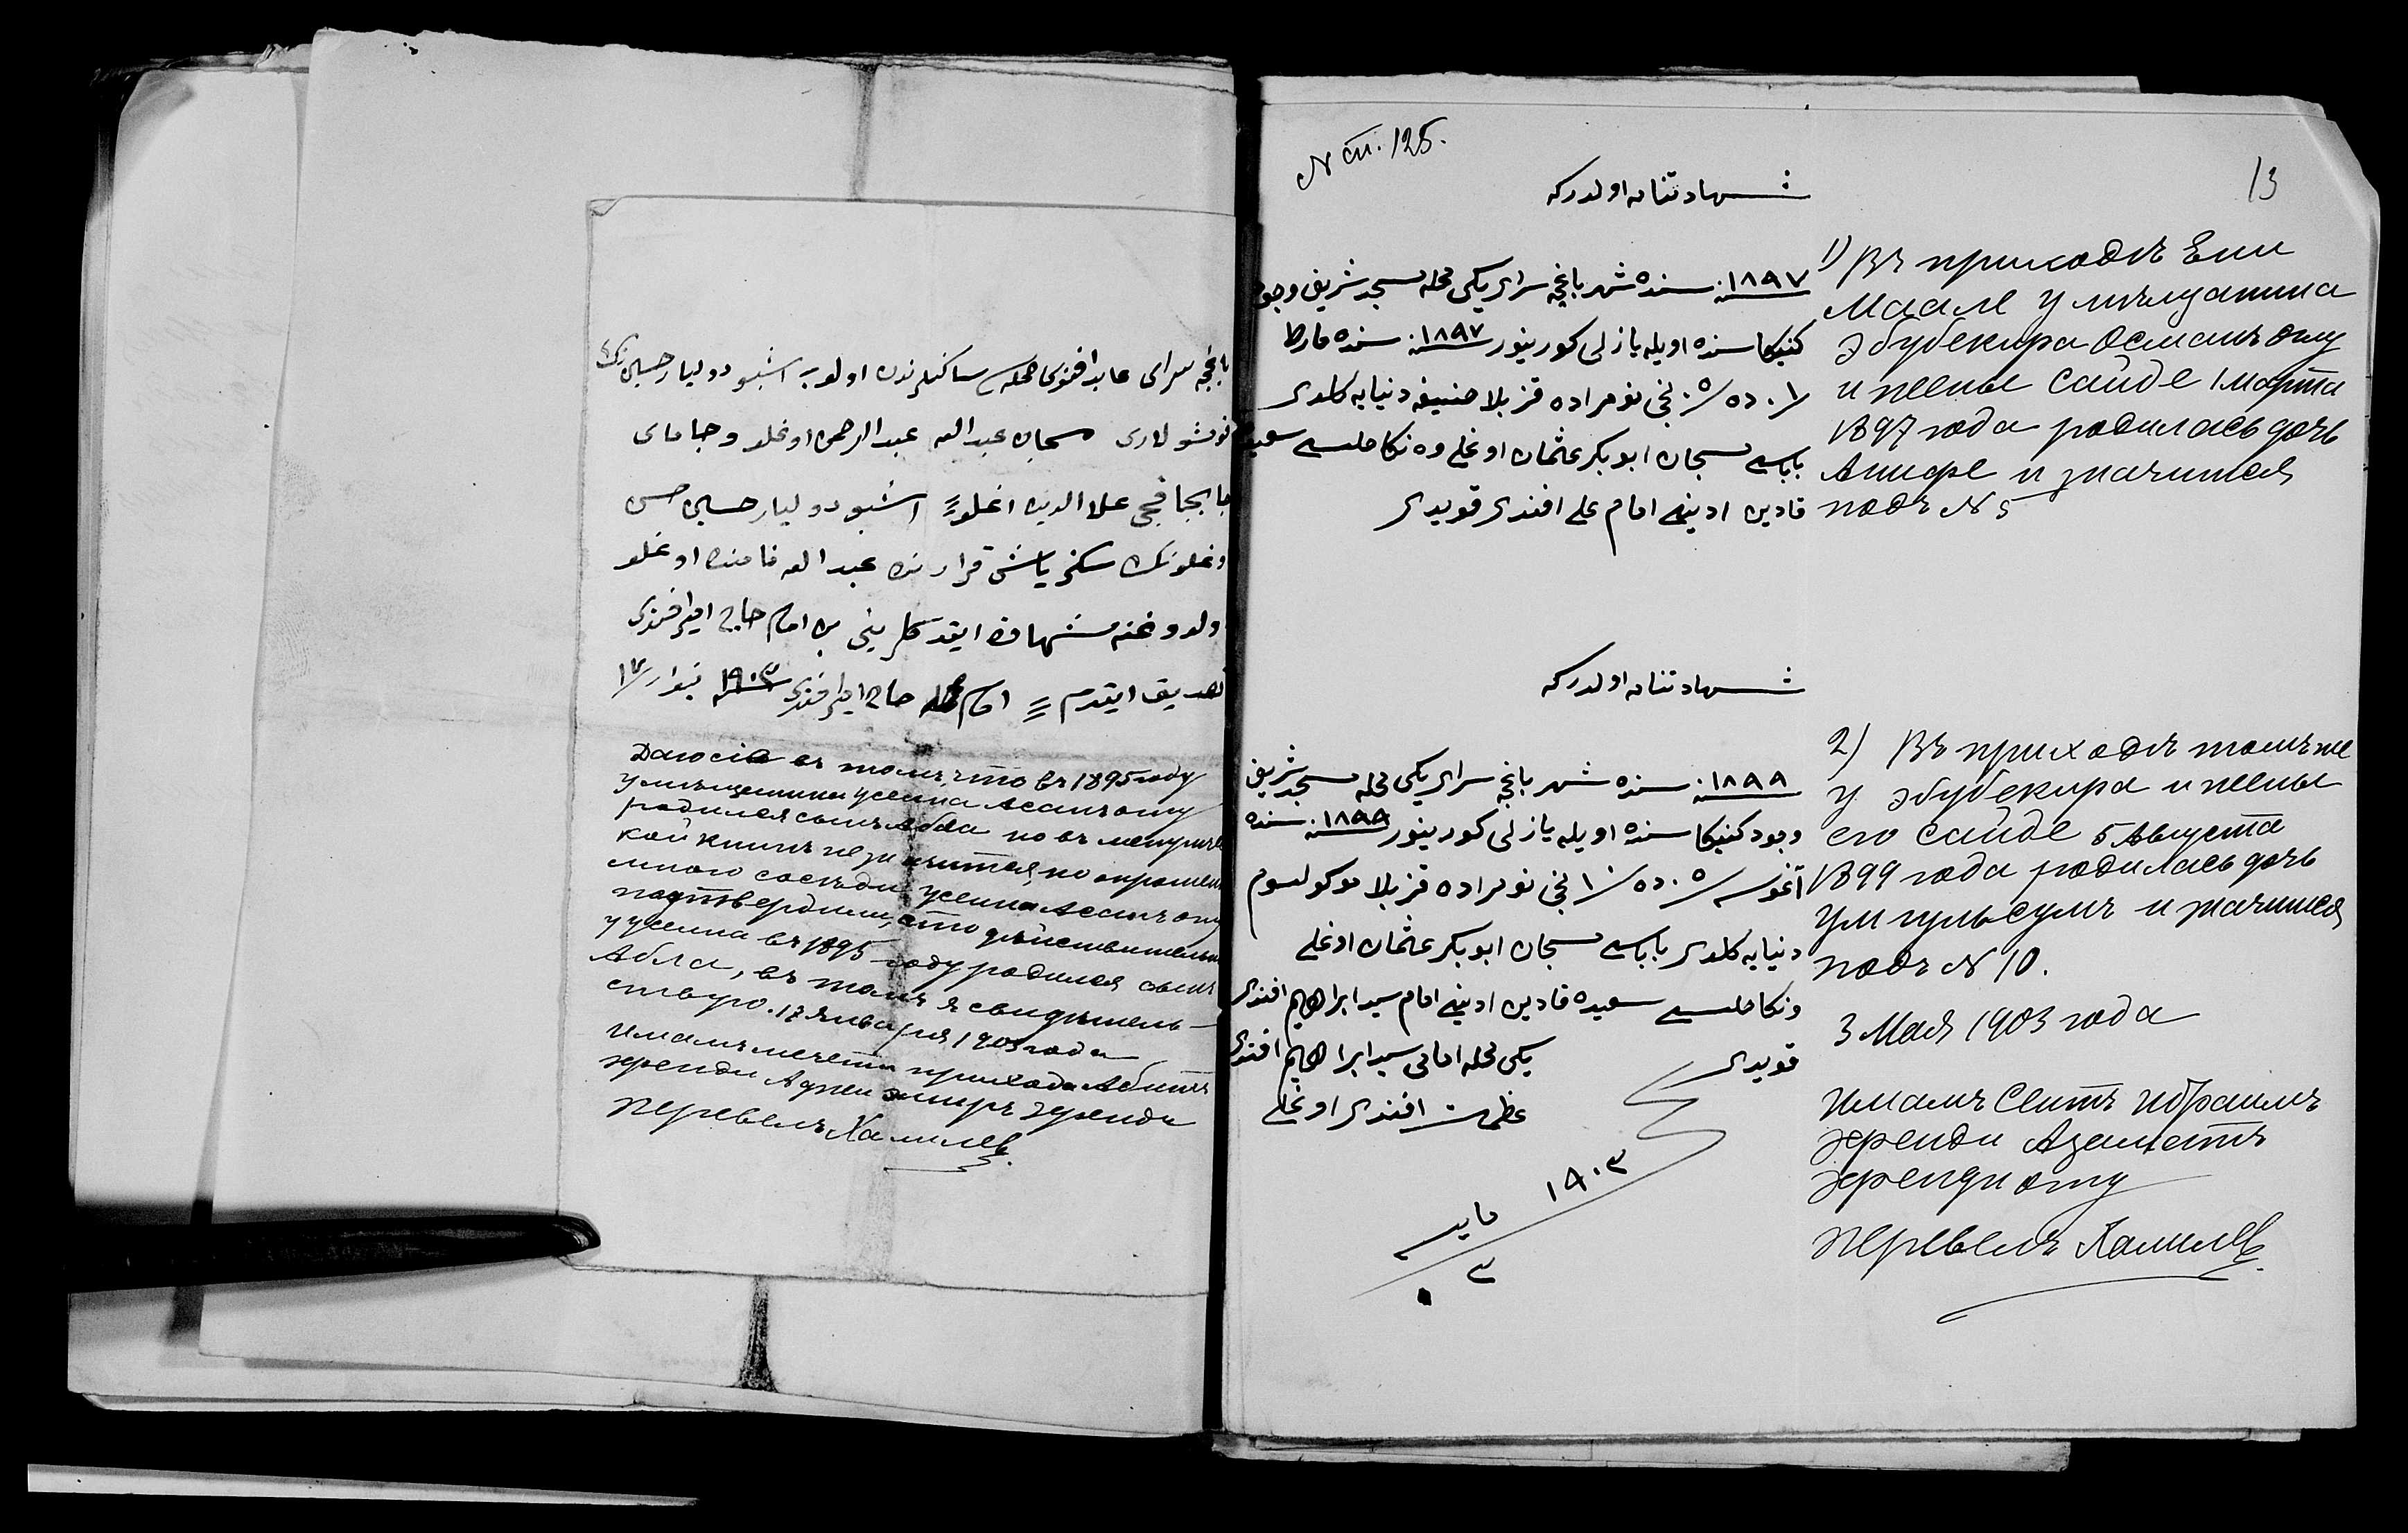 باغچه سرای عابد افندی محله ساکنلرندن اولوب اشبو دولیار حسین نك
قومشولاری مسچان عبدالله عبدالرحمن اوغلو وجاماى
علا الدین اغلو اشبو دولیار حسین حسن
اوغلونك سکز یاش قرارنده عبدالله نامنده اوغلو
اولدوغنه شهادة ایتدكلرینی بن امام حاجی امیر افندی
تصدیق ایتدم امام حاجی امیر افندی ١٩٠٣ ینوار ١٧
Даю сіе въ томъ, что въ 1895 году
у мѣщанина Усеина Асанъ оглу
родился сынъ Абла но въ метриче
кой книгѣ не значится, но опрошен
мною сосѣди Усеина Асанъ оглу
подтвердили, что дѣйствительно
у Усеина въ 1895 году родился сынъ
Абла, въ томъ я свидѣтель-
ствую. 17 Января 1903 года
Имамъ мечети прихода Абитъ
эфенди Аджи Эмиръ эфенди
Перевелъ Халилев
N ст. 125.
13
شهادتنامه اولدركه
١٨٩٧ سنه سنده شهر باغچه سرای یکی محله مسجد شریف وجود
کنیکاسنده اویله یازلی کورینور ١٨٩٧ سنه سنده مارط
١ ده ٥ نجی نومراده قز بلا حنیفه دنیایه کلدی
باباسی مسچان ابوبکر عثمان اوغلی وه نکاحلیسی سعیده
قادین ادینی امام علی افندی قویدی
1) Въ приходѣ Ени
Маале у мѣщанина
Эбубекира Османъ оглу
и жены Саиде 1 марта
1897 года родилась дочь
Анифе и значится
подъ N 5
شهادتنامه اولدركه
١٨٩٩ سنه سنده شهر باغچه سرای یکی محله مسجد شریف
وجود کنیکاسنده اویله یازلی کورینور ١٨٩٩ سنه سنده
آغوس ٥ ده ١٠ نجی نومراده قز بلا اموکولسوم
دنیایه کلدی باباسی مسچان ابوبکر عثمان اوغلی
ونکاحلیسی سعیده قادین ادینی امام سید ابراهیم افندی
قویدی یکی محله امامی سید ابراهیم افندی
عظمت افندی اوغلی
١٩٠٣
مایس
٣
2) Въ приходѣ томъ же
у Эбубекира и жены
его Саиде 5 Августа
1899 года родилась дочь
Умгульсумъ и значится
подъ N 10.
3 Мая 1903 года
Имамъ Сеитъ Ибраимъ
эфенди Азаметъ
эфенди оглу
Перевелъ Халилев